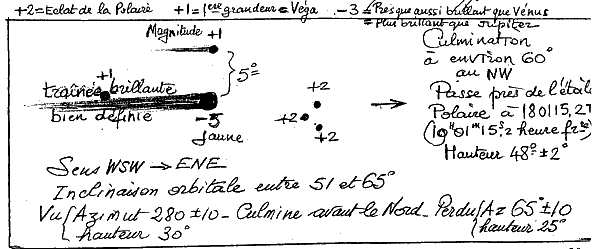 +2=Eclat de la Polaire +1=1ere grandeur=Véga -3=Presque aussi brillant que Vénus
=Plus brillant que Jupiter
Magnitude +1
5°
+1
traînée brillante
bien définie
-3
Jaune
+2
+2
+2
Culmination
à environ 60°
au NW
Passe près de l'étoile
Polaire à 180115,2T
(19H 01m 15s,2 heure frse)
Hauteur 48° ± 2°
Sens WSW → ENE
Inclinaison orbitale entre 51 et 65°
Vu { Azimut 280 ± 10 - Culmine avant le Nord - Perdu { Az = 65° ± 10
hauteur 30° hauteur 25°